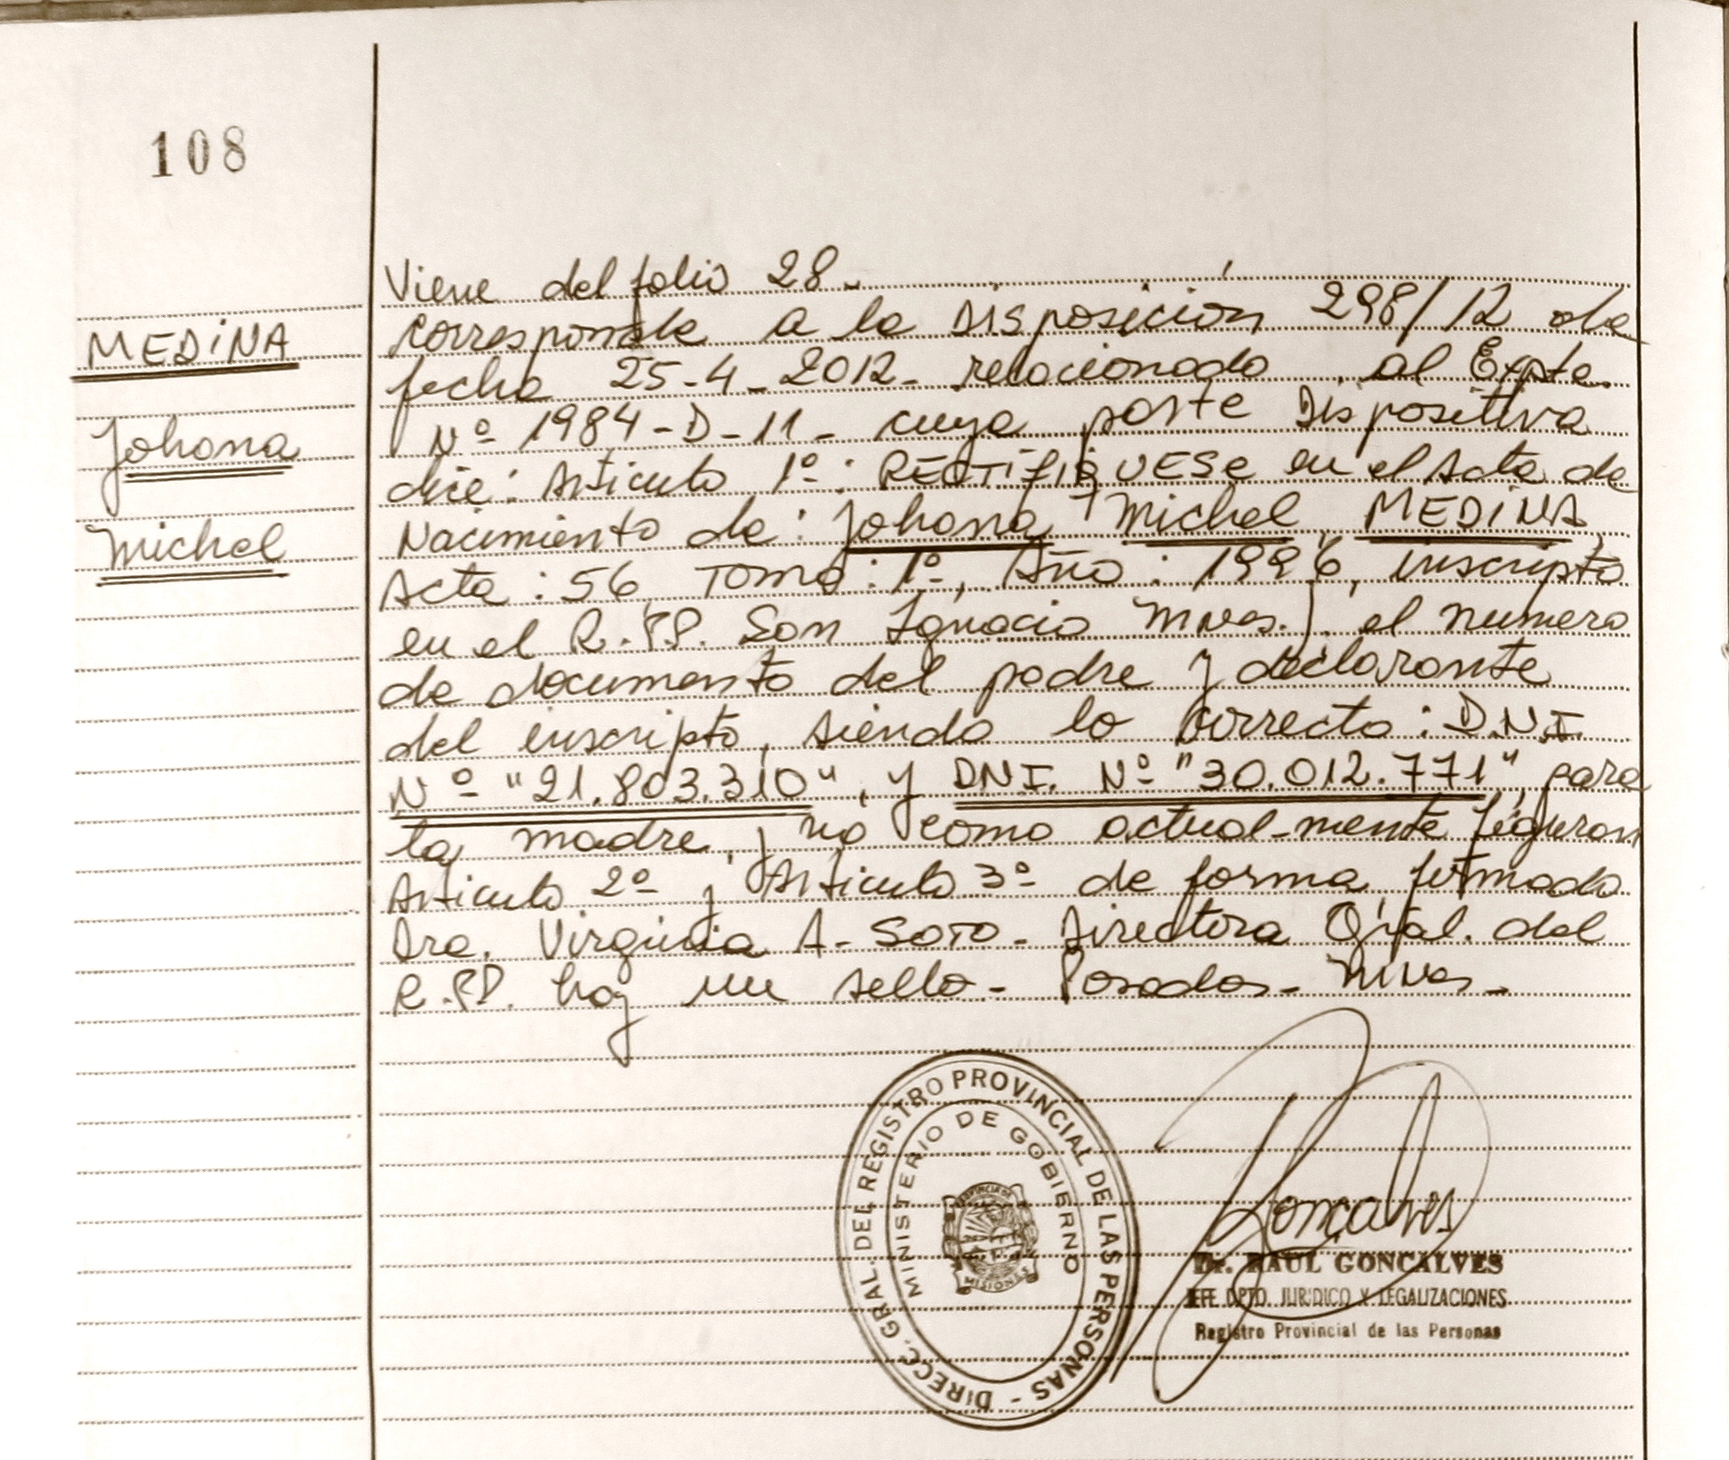 108
Viene del folio 28.
MEDINA
Johana
Michel
corresponde a la Disposición 298/12 de
fecha 25-4-2012- relacionado al Expte.
Nº 1984-D-11- cuya parte Dispositiva
dice: Articulo 1º: RECTIFIQUESE en el Acta de
Nacimiento de: Johana Michel MEDINA
Acta: 56, Tomo: 1º, Año: 1996, inscripto
en el R.P.P. San Ignacio Mnes.; el numero
de documento del padre y declarante
del inscripto, siendo lo correcto: D.N.I.
Nº "21.803.310", y DNI. Nº "30.012.771", para
la madre, y no como actual-mente figuran
Articulo 2º y Articulo 3º de forma, firmado
Dra. Virginia A. SOTO- Directora Gral. del
R.P.P. hay un sello- Posadas- Mnes-
DIRECC. GRAL. DEL REGISTRO PROVINCIAL DE LAS PERSONAS -
MINISTERIO DE GOBIERNO
PROVINCIA DE
MISIONES
Goncalves
Dr. RAUL GONCALVES
JEFE DPTO. JURIDICO Y LEGALIZACIONES
Registro Provincial de las Personas